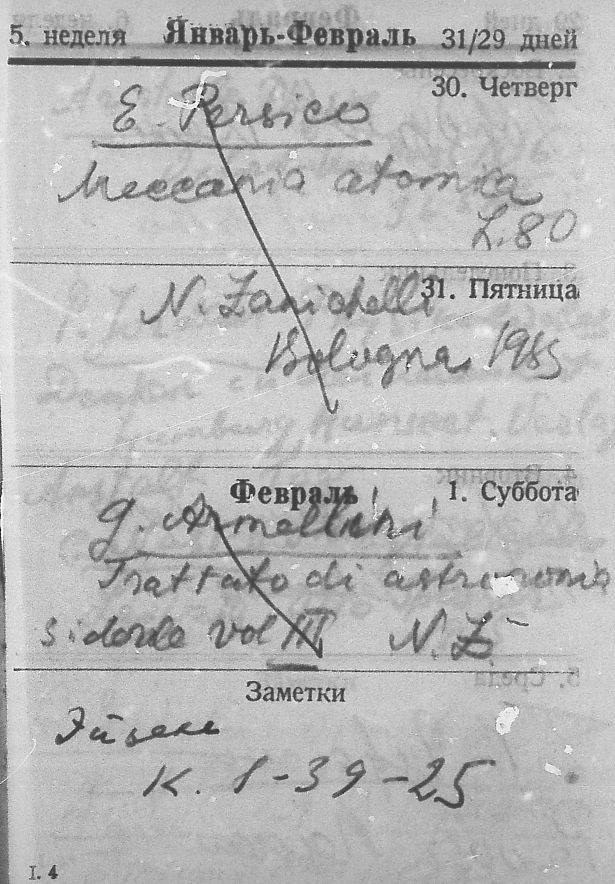 5. неделя Январь-Февраль 31/29 дней
30. Четверг
E. Persico
Meccania atomica
L. 80
31. Пятница
N. Zanichelli
Bologna 1935
Февраль 1. Суббота
G. Armellini
Trattato di astronomia
siderale vol III N. Z
Заметки
К. 1-39-25
I. 4